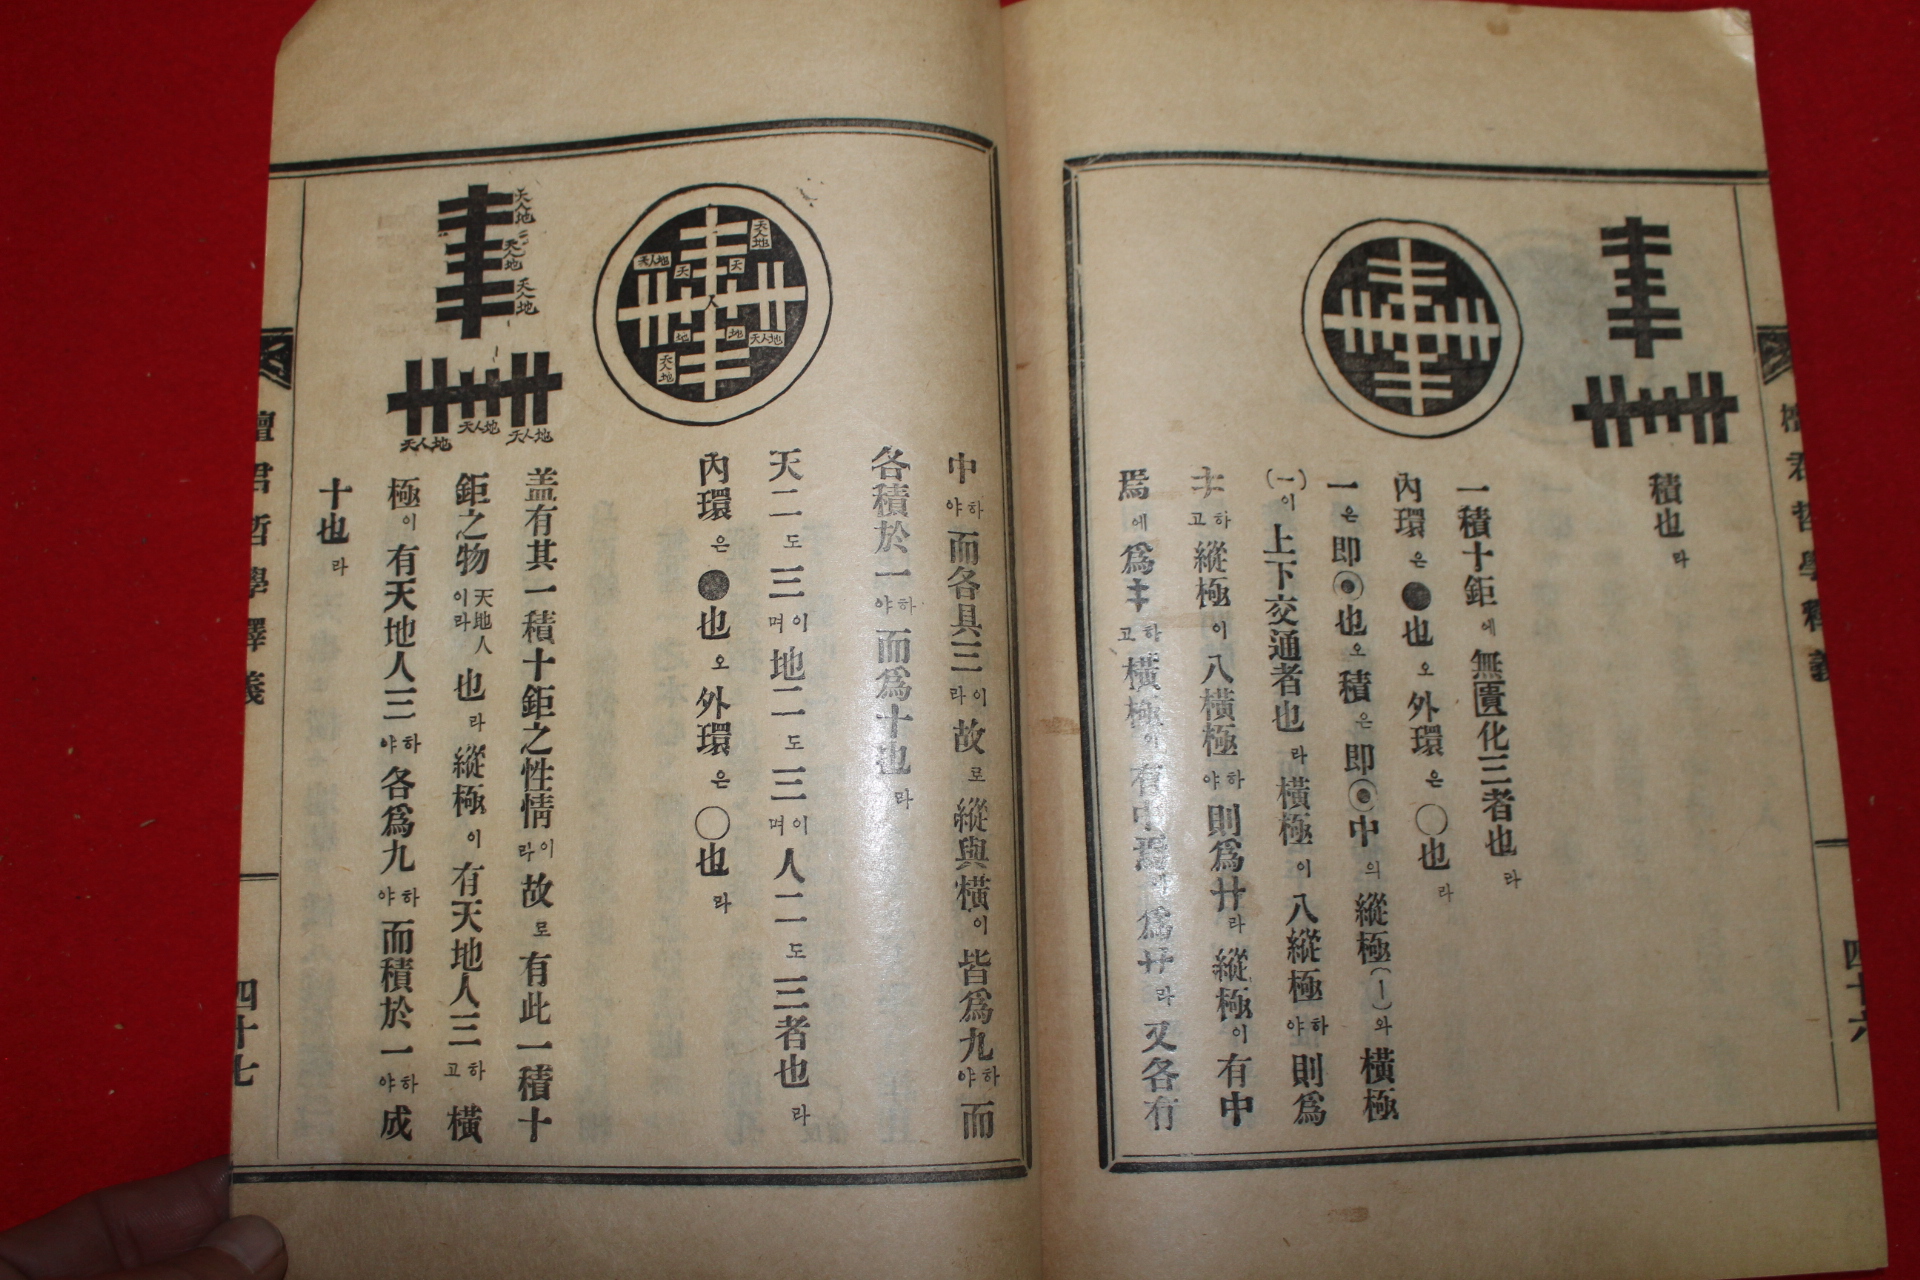 積也라
一積十鉅에無匱化三者也라
內環은●也오外環은○也라
一은即◉也오積은即◉中의縱極(丨)와橫極
(一)이上下交通者也라橫極이八縱極하야則爲
キ하고縱極이八橫極하야則爲卄라縱極이有中
焉에爲キ하고橫極이有中焉에爲卄라又各有
中하야而各具三이라故로縱與橫이皆爲九하야而
各積於一하야而爲十也라
天二도三이며地二도三이며人二도三者也라
天人地
天人地
天
天
人
地
地
天人地
天人地
內環은●也오外環은○也라
盖有其一積十鉅之性情이라故로有此一積十
鉅之物天地人이라也라縱極이有天地人三하고橫
極이有天地人三하야各爲九하야而積於一하야成
十也라
天人地
天人地
天人地
天人地
天人地
天人地
檀君哲學釋義
四十七
君哲學釋義
四十六